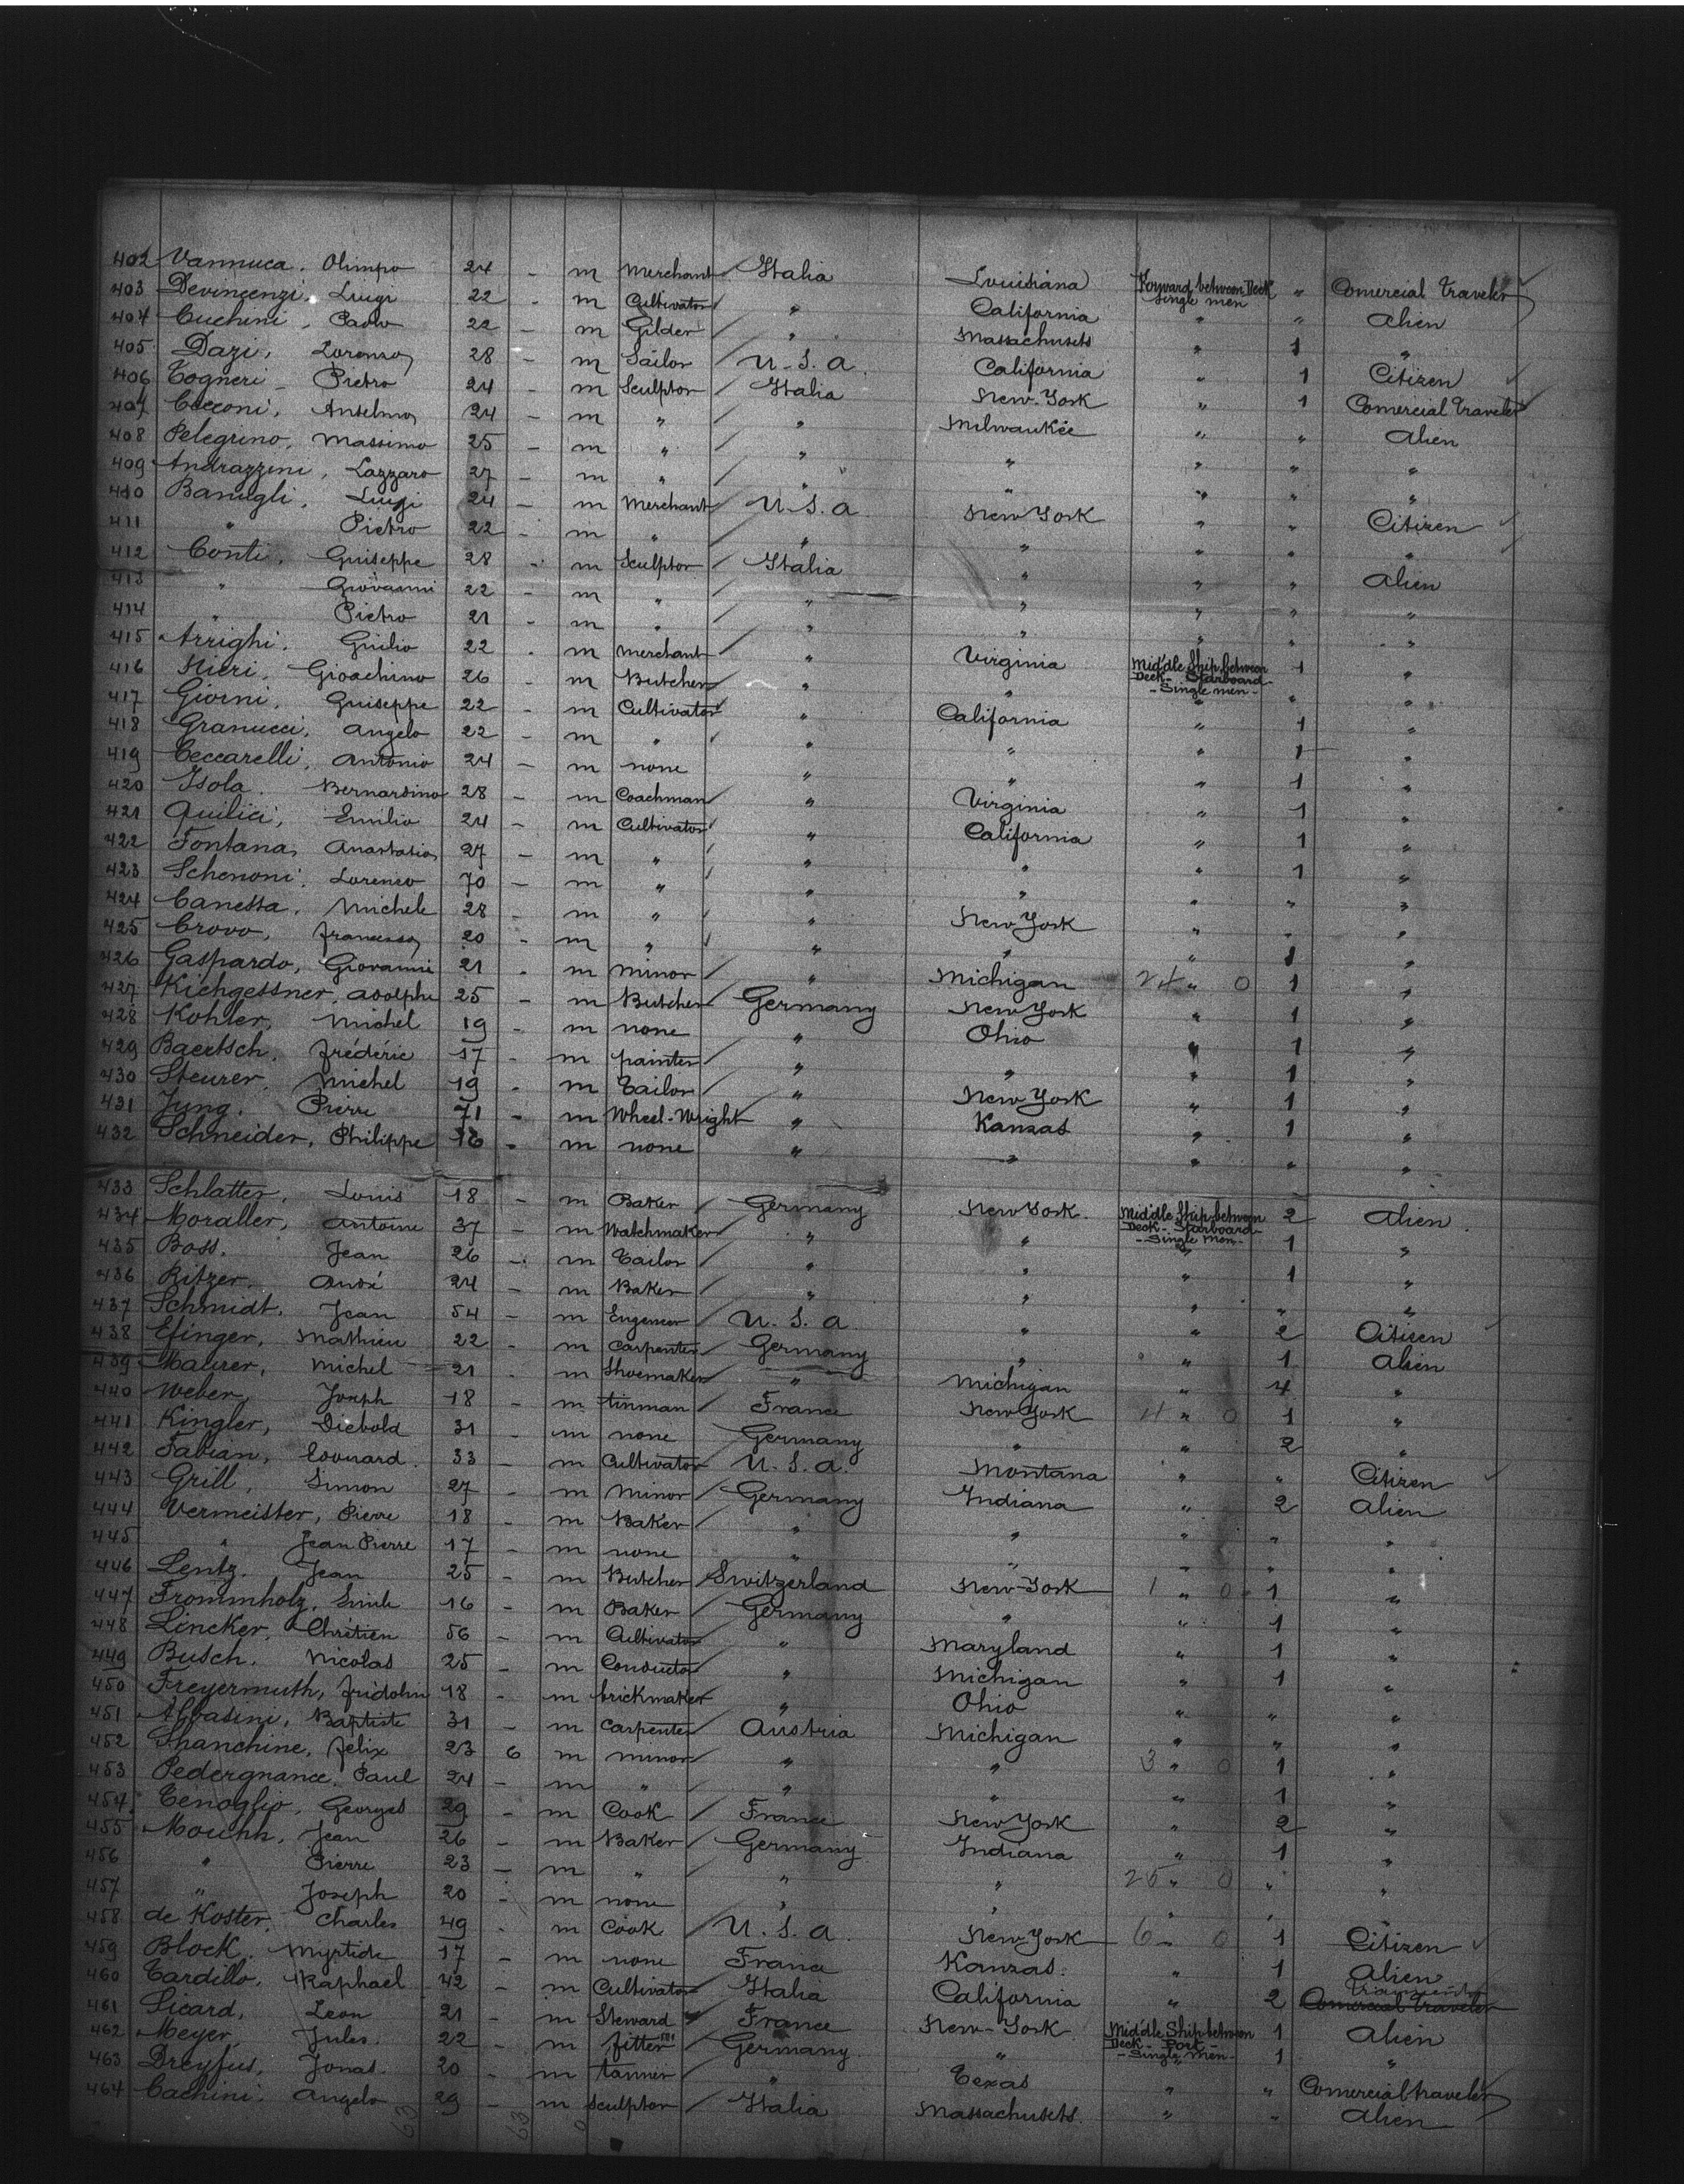 402 Vannuca, Olimpo 24 - m Merchant Italia Louisiana Forward between Deck Single men " Comercial Traveler
403 Devincenzi, Luigi 22 - m Cultivator " California " " Alien
404 Cuchini, Paolo 22 - m Gilder " Massachusets " 1 "
405 Dazi, Lorenzo 28 - m Sailor U.S.a. California " 1 Citizen
406 Togneri Pietro 24 - m Sculptor Italia New-York " 1 Comercial Traveler
407 Cecconi, Anselmo 24 - m " " Milwaukee " " Alien
408 Pelegrino, Massimo 25 - m " " " " " "
409 Andrazzini, Lazzaro 27 - m " " " " " "
410 Banugli, Luigi 24 - m Merchant U.S.a. New York " " Citizen
411 " Pietro 22 - m " " " " " "
412 Conti, Guiseppe 28 - m Sculptor Italia " " " Alien
413 " Giovanni 22 - m " " " " " "
414 " Pietro 21 - m " " " " " "
415 Arrighi, Guilio 22 - m Merchant " Virginia Middle Ship between Deck - Starboard - Single men - 1 "
416 Nieri, Gioachino 26 - m Butcher " " " " "
417 Giorni, Guiseppe 22 - m Cultivator " California " 1 "
418 Granucci, Angelo 22 - m " " " " 1 "
419 Ceccarelli, Antonio 24 - m none " " " 1 "
420 Isola. Bernardino 28 - m Coachman " Virginia " 1 "
421 Quilici, Emilio 24 - m Cultivator " California " 1 "
422 Fontana, Anastasio 27 - m " " " " 1 "
423 Schenoni, Lorenco 70 - m " " " " " "
424 Canessa, Michele 28 - m " " New York " " "
425 Crovo, Francesco 20 - m " " " " 1 "
426 Gaspardo, Giovanni 21 - m Minor " Michigan 24 " 0 1 "
427 Kichgessner, Adolphe 25 - m Butcher Germany New York " 1 "
428 Kohler, Michel 19 - m none " Ohio " 1 "
429 Baertsch, Frédéric 17 - m painter " " " 1 "
430 Steurer, Michel 19 - m Tailor " New York " 1 "
431 Jung. Pierre 71 - m Wheel-Wright " Kanzas " 1 "
432 Schneider, Philippe 16 - m none " " " " "
433 Schlatter, Louis 18 - m Baker Germany New York. Middle Ship between Deck - Starboard - Single Men - 2 Alien
434 Moraller, Antoine 37 - m Watchmaker " " " 1 "
435 Boss. Jean 26 - m Tailor " " " 1 "
436 Ritzer. André 24 - m Baker " " " " "
437 Schmidt. Jean 54 - m Engeneer U.S.a. " " 2 Citizen
438 Efinger, Mathieu 22 - m Carpenter Germany " " 1 Alien
439 Maurer, Michel 21 - m Shoemaker " Michigan " 4 "
440 Weber, Joseph 18 - m tinman France New York 11 " 0 1 "
441 Kingler, Diebold 31 - m none Germany " " 2 "
442 Fabian, Edouard. 33 - m Cultivator U.S.a. Montana " " Citizen
443 Grill, Simon 27 - m Minor Germany Indiana " 2 Alien
444 Vermeister, Pierre 18 - m Baker " " " " "
445 " Jean Pierre 17 - m none " " " " "
446 Lentz. Jean 25 - m Butcher Switzerland New-York 1 " 0 1 "
447 Frommholz, Emile 16 - m Baker Germany " " 1 "
448 Lincker, Chrétien 56 - m Cultivator " Maryland " 1 "
449 Busch. Nicolas 25 - m Conductor " Michigan " 1 "
450 Freyermuth, Fridolin 18 - m brickmaker " Ohio " " "
451 Abbasini, Baptiste 31 - m Carpenter Austria Michigan " " "
452 Shanchine, Félix 23 6 m minor " " 3 " 0 1 "
453 Pedergnance, Paul 24 - m " " " " 1 "
454 Tenoglio, Georges 29 - m Cook France New York " 2 "
455 Mouhh, Jean 26 - m Baker Germany Indiana " 1 "
456 " Pierre 23 - m " " " 25 " 0 " "
457 " Joseph 20 - m none " " " " "
458 de Koster, Charles 49 - m Cook U.S.a. New York 6 " 0 1 Citizen
459 Block. Myrtide 17 - m none France Kanzas. " 1 Alien
460 Tardillo. Raphael 42 - m Cultivator Italia California " 2 Comercial Traveler
461 Sicard, Leon 21 - m Steward France New-York Middle Ship between Deck - Port - Single Men - 1 Alien
462 Meyer, Jules. 22 - m fitter Germany " " 1 "
463 Dreyfus, Jonas. 20 - m tanner " Texas " " Comercial traveler
464 Cachini, Angelo 29 - m sculptor Italia Massachusets. " " Alien
63 63 0